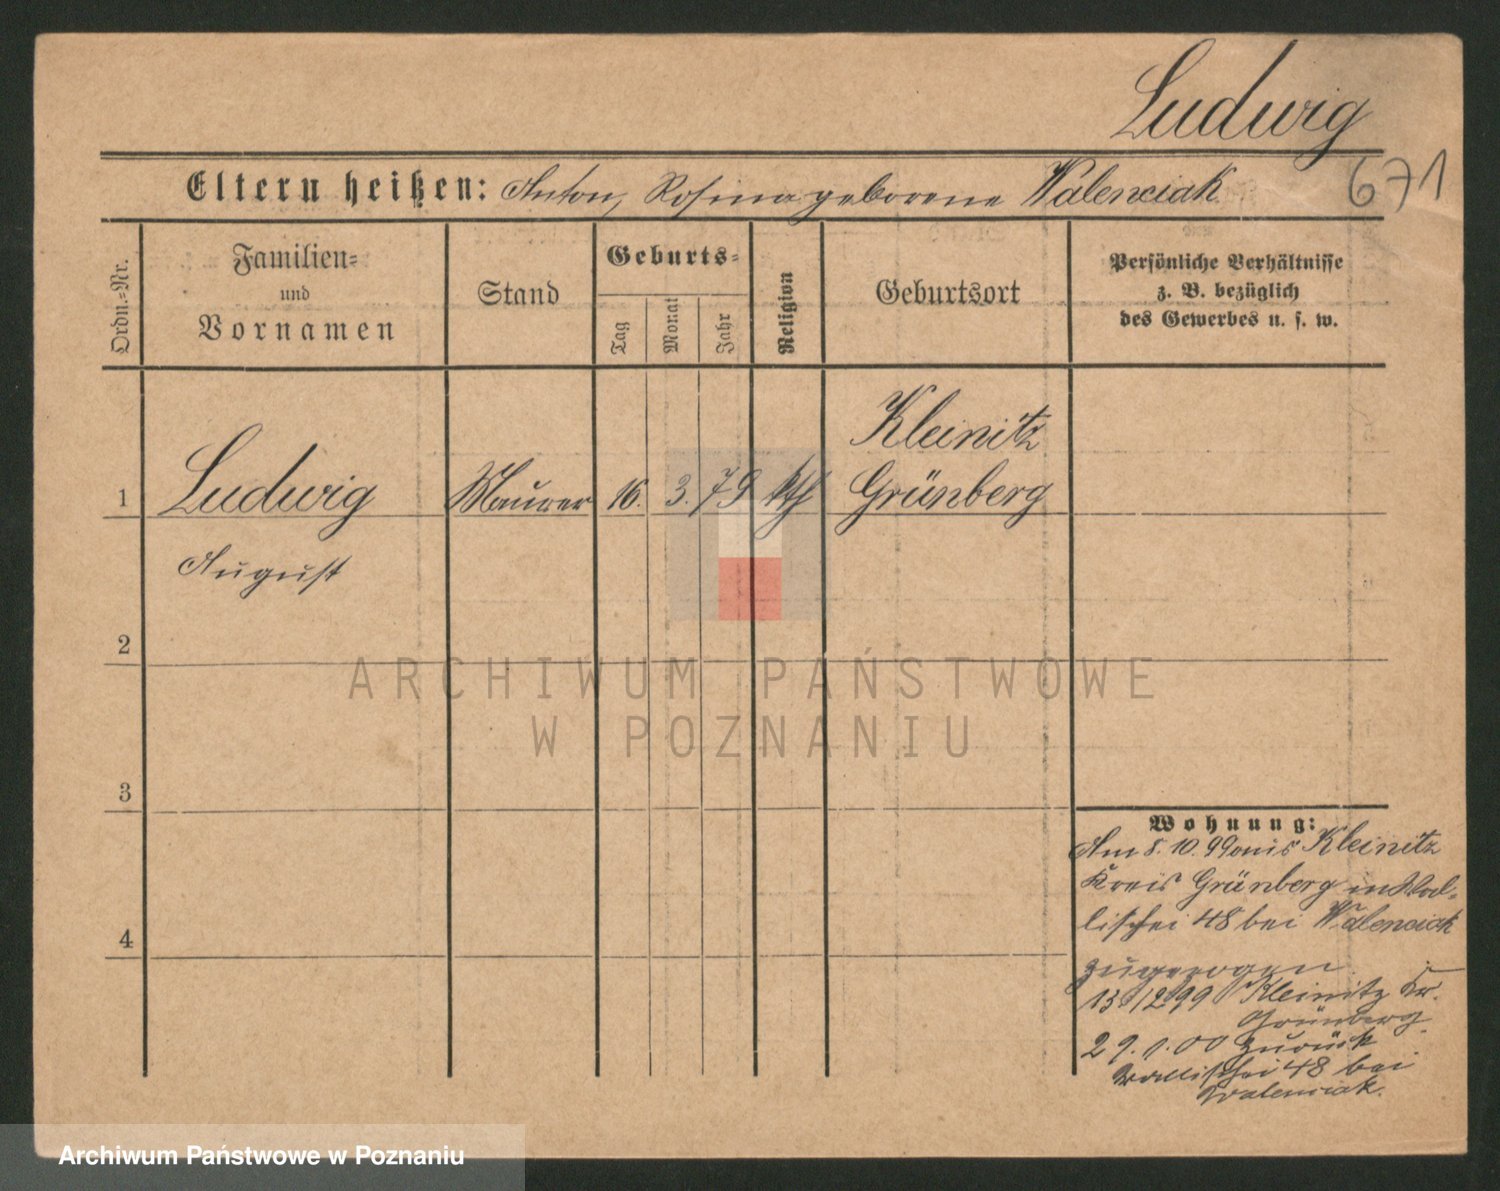 Ludwig
671
Eltern heißen: Anton, Rosina geborene Walenciak
Ordn.=Nr.
Familien=
und
Vornamen
Stand
Geburts=
Tag
Monat
Jahr
Religion
Geburtsort
Persönliche Verhältnisse
z. B. bezüglich
des Gewerbes u. s. w.
1
Ludwig
August
Maurer
16.
3.
79
kth
Kleinitz
Grünberg
2
3
4
Wohnung:
Am 8. 10. 99 aus Kleinitz
Kreis Grünberg in Wal-
lischei 48 bei Walenciak
zugezogen
13/12 99 Kleinitz Kr.
Grünberg.
29. 1. 00 zurück
Wallischei 48 bei
Walenciak.
ARCHIWUM PAŃSTWOWE
W POZNANIU
Archiwum Państwowe w Poznaniu